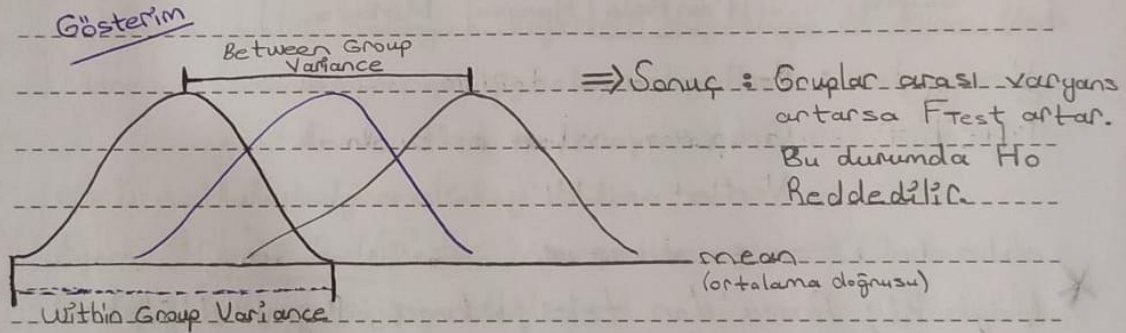 Gösterim
Between Group
Variance
⇒ Sonuç : Gruplar arası varyans
artarsa FTest artar.
Bu durumda Ho
Reddedilir.
mean
(ortalama doğrusu)
Within Group Variance